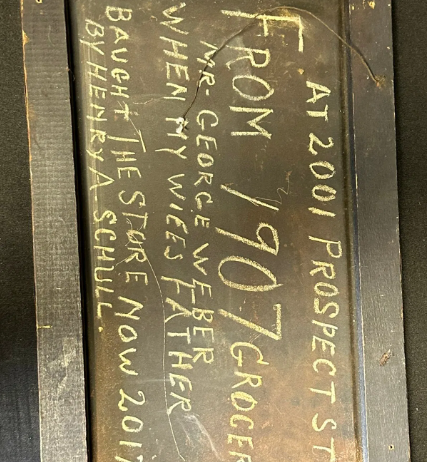 AT 2001 PROSPECT ST
FROM 1907 GROCER
MR. GEORGE WEBER
WHEN MY WIFES FATHER
BAUGHT THE STORE NOW 201
BY HENRY A SCHULL.